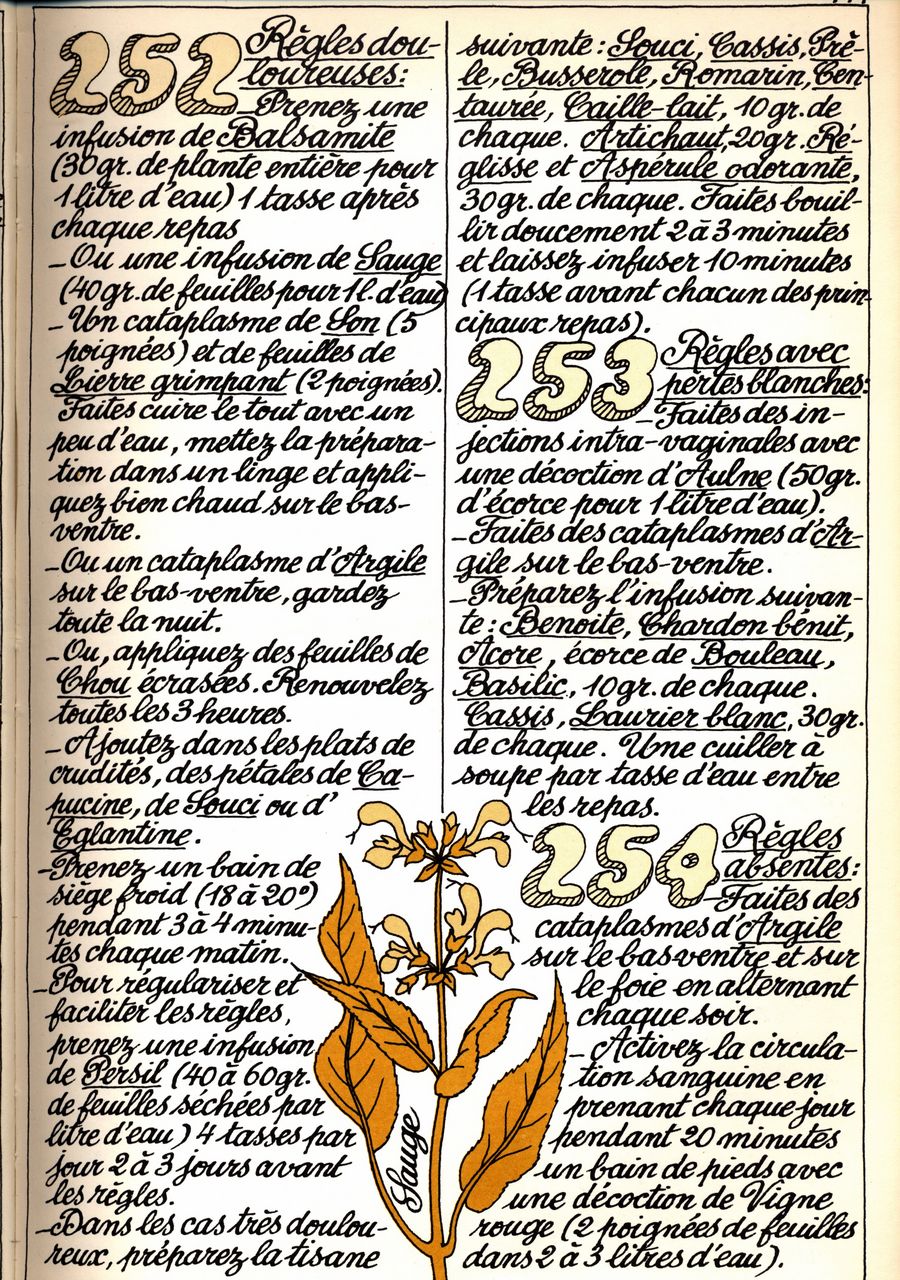 252 Règles dou-
loureuses:
_Prenez une
infusion de Balsamite
(30gr. de plante entière pour
1 litre d'eau) 1 tasse après
chaque repas
_Ou une infusion de Sauge
(40gr. de feuilles pour 1l. d'eau)
_Un cataplasme de Son (5
poignées) et de feuilles de
Lierre grimpant (2 poignées).
Faites cuire le tout avec un
peu d'eau, mettez la prépara-
tion dans un linge et appli-
quez bien chaud sur le bas-
ventre.
_Ou un cataplasme d'Argile
sur le bas-ventre, gardez
toute la nuit.
_Ou, appliquez des feuilles de
Chou écrasées. Renouvelez
toutes les 3 heures.
_Ajoutez dans les plats de
crudités, des pétales de Ca-
pucine, de Souci ou d'
Eglantine.
_Prenez un bain de
siège froid (18 à 20°)
pendant 3 à 4 minu-
tes chaque matin.
_Pour régulariser et
faciliter les règles,
prenez une infusion
de Persil (40 à 60gr.
de feuilles séchées par
litre d'eau) 4 tasses par
jour 2 à 3 jours avant
les règles.
_Dans les cas très doulou-
reux, préparez la tisane
suivante: Souci, Cassis, Prê-
le, Busserole, Romarin, Cen-
taurée, Caille-lait, 10 gr. de
chaque. Artichaut, 20gr. Ré-
glisse et Aspérule odorante,
30gr. de chaque. Faites bouil-
lir doucement 2 à 3 minutes
et laissez infuser 10 minutes
(1 tasse avant chacun des prin-
cipaux repas).
253 Règles avec
pertes blanches:
_Faites des in-
jections intra-vaginales avec
une décoction d'Aulne (50gr.
d'écorce pour 1 litre d'eau).
_Faites des cataplasmes d'Ar-
gile sur le bas-ventre.
_Préparez l'infusion suivan-
te: Benoite, Chardon bénit,
Acore, écorce de Bouleau,
Basilic, 10gr. de chaque.
Cassis, Laurier blanc, 30gr.
de chaque. Une cuiller à
soupe par tasse d'eau entre
les repas.
254 Règles
absentes:
_Faites des
cataplasmes d'Argile
sur le bas ventre et sur
le foie en alternant
chaque soir.
_Activez la circula-
tion sanguine en
prenant chaque jour
pendant 20 minutes
un bain de pieds avec
une décoction de Vigne
rouge (2 poignées de feuilles
dans 2 à 3 litres d'eau).
Sauge